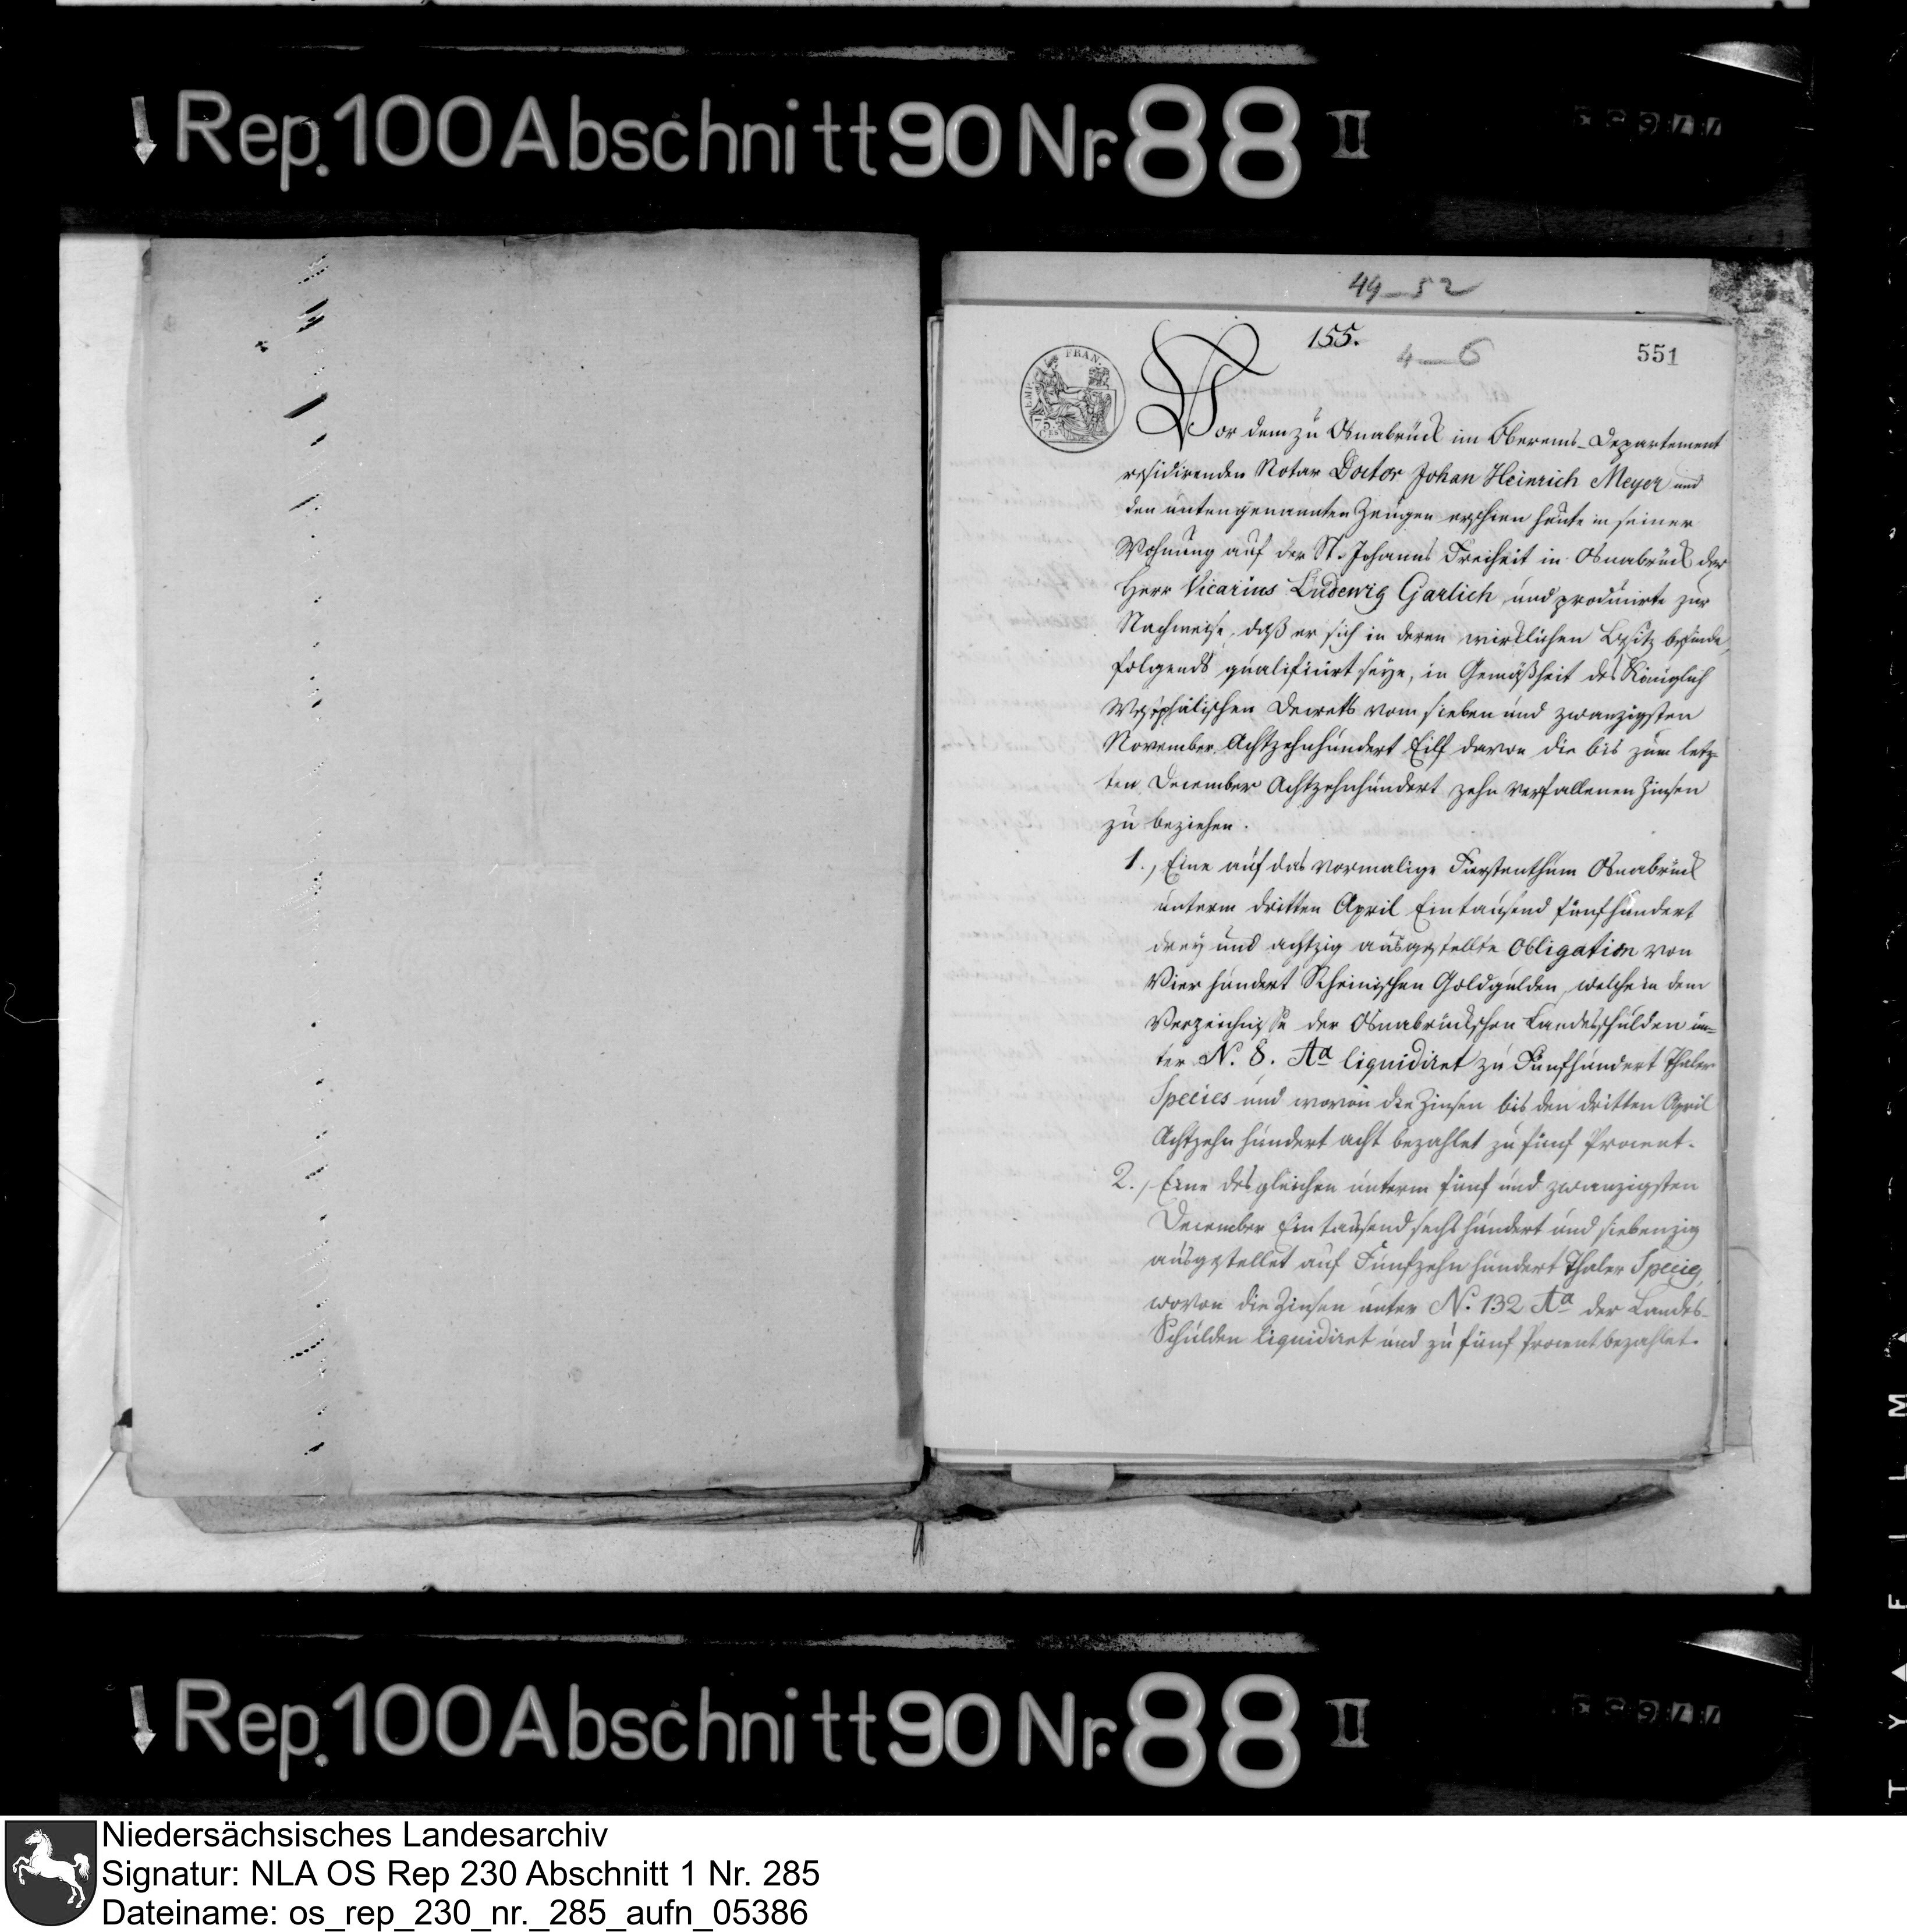 Rep. 100 Abschnitt 90 Nr. 88 II
49_52
155.
4_6
551
EMP. FRAN.
75
CEN
Vor dem zu Osnabrück im Oberems-Departement
residirenden Notar Doctor Johan Heinrich Meyer und
den untengenannten Zeugen erschien heute in seiner
Wohnung auf der St. Johanns Freiheit in Osnabrück der
Herr Vicarius Ludewig Garlich und producirte zur
Nachweise, daß er sich in deren wirklichen Besitz befinde,
folgends qualificirt seye, in Gemäßheit des Königlich
Westphälischen Decretts vom sieben und zwanzigsten
November Achtzehnhundert Eilf davon die bis zum letz-
ten December Achtzehnhundert zehn verfallenen Zinsen
zu beziehen.
1., Eine auf das vormalige Fürstenthum Osnabrück
unterm dritten April Eintausend fünfhundert
drey und achtzig ausgestellte Obligation von
Vier hundert Rheinischen Goldgulden, welche in dem
Verzeichnisse der Osnabrückschen Landesschulden un-
ter N. 8. Aa liquidiret zu Fünfhundert Thaler
Species und wovon die Zinsen bis den dritten April
Achtzehn hundert acht bezahlet zu fünf Procent.
2., Eine desgleichen unterm fünf und zwanzigsten
December Ein tausend sechs hundert und siebenzig
ausgestellet auf Fünfzehn hundert Thaler Specieg
wovon die Zinsen unter N. 132 Aa der Landes-
Schulden liquidiret und zu fünf Procent bezahlet.
Rep. 100 Abschnitt 90 Nr. 88 II
Niedersächsisches Landesarchiv
Signatur: NLA OS Rep 230 Abschnitt 1 Nr. 285
Dateiname: os_rep_230_nr._285_aufn_05386